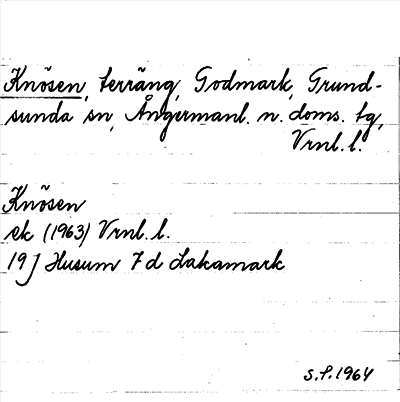 Knösen, terräng, Godmark, Grund-
sunda sn, Ångermanl. n. doms. tg,
Vrnl. l.
Knösen
ek (1963) Vrnl. l.
19 J Husum 7 d Lakamark
S.F. 1964